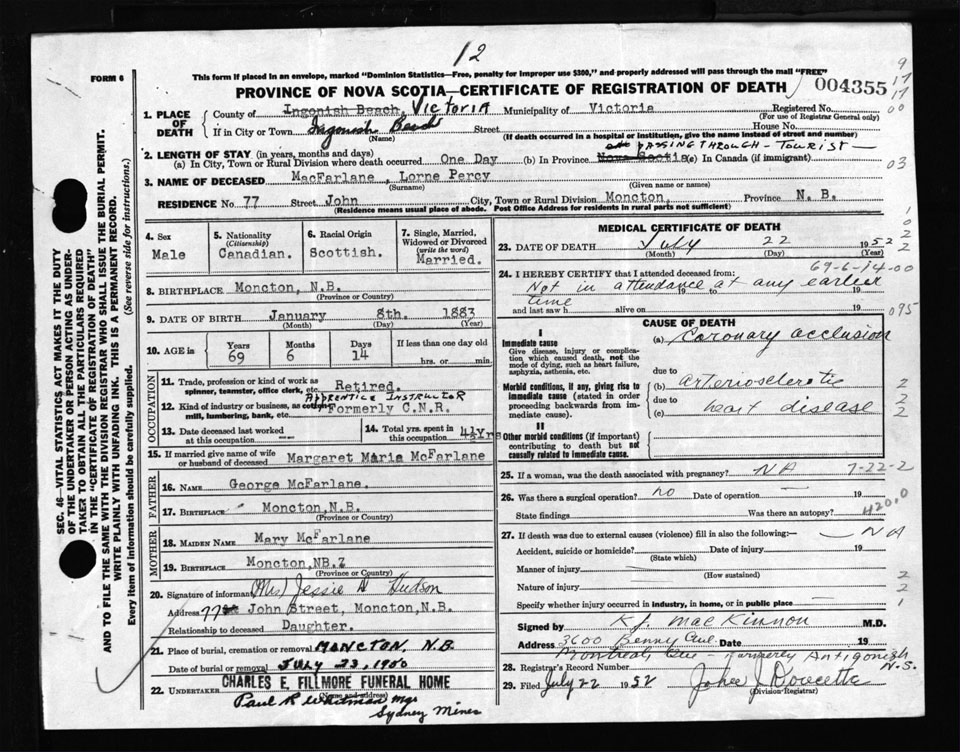 12
FORM 6
This form if placed in an envelope, marked "Dominion Statistics—Free, penalty for improper use $300," and properly addressed will pass through the mail "FREE"
PROVINCE OF NOVA SCOTIA—CERTIFICATE OF REGISTRATION OF DEATH
004355
9
17
17
00
03
1. PLACE OF DEATH
County of Ingonish Beach, Victoria Municipality of Victoria Registered No.
(For use of Registrar General only)
If in City or Town Ingonish Beach Street House No.
(Name) (If death occurred in a hospital or institution, give the name instead of street and number)
PASSING THROUGH - TOURIST -
2. LENGTH OF STAY (in years, months and days)
(a) In City, Town or Rural Division where death occurred One Day (b) In Province Nova Scotia (c) In Canada (if immigrant)
3. NAME OF DECEASED MacFarlane, Lorne Percy
(Surname) (Given name or names)
RESIDENCE No. 77 Street John City, Town or Rural Division Moncton, Province N. B.
(Residence means usual place of abode. Post Office Address for residents in rural parts not sufficient)
SEC. 46—VITAL STATISTICS ACT MAKES IT THE DUTY
OF THE UNDERTAKER OR PERSON ACTING AS UNDER-
TAKER TO OBTAIN ALL THE PARTICULARS REQUIRED
IN THE "CERTIFICATE OF REGISTRATION OF DEATH"
AND TO FILE THE SAME WITH THE DIVISION REGISTRAR WHO SHALL ISSUE THE BURIAL PERMIT.
WRITE PLAINLY WITH UNFADING INK. THIS IS A PERMANENT RECORD.
Every item of information should be carefully supplied. (See reverse side for instructions.)
4. Sex
Male
5. Nationality
(Citizenship)
Canadian.
6. Racial Origin
Scottish.
7. Single, Married, Widowed or Divorced
(write the word)
Married.
8. BIRTHPLACE Moncton, N.B.
(Province or Country)
9. DATE OF BIRTH January 8th. 1883
(Month) (Day) (Year)
10. AGE in
Years Months Days If less than one day old
69 6 14 hrs. or min.
OCCUPATION
11. Trade, profession or kind of work as spinner, teamster, office clerk, etc. Retired.
APPRENTICE INSTRUCTOR
12. Kind of industry or business, as cotton mill, lumbering, bank, etc. Formerly C.N.R.
13. Date deceased last worked at this occupation --
14. Total yrs. spent in this occupation 41Yrs
15. If married give name of wife or husband of deceased Margaret Maria McFarlane
FATHER
16. NAME George McFarlane.
17. BIRTHPLACE Moncton, N.B.
(Province or Country)
MOTHER
18. MAIDEN NAME Mary McFarlane
19. BIRTHPLACE Moncton, NB.Z
(Province or Country)
20. Signature of informant (Mrs) Jessie Hudson
Address 77 John Street, Moncton, N.B.
Relationship to deceased Daughter.
21. Place of burial, cremation or removal MONCTON, N.B.
Date of burial or removal JULY 23, 1950
22. UNDERTAKER CHARLES E. FILLMORE FUNERAL HOME
(Name and address)
Paul R Whitman Mgr
Sydney Mines
MEDICAL CERTIFICATE OF DEATH
23. DATE OF DEATH July 22 1952
(Month) (Day) (Year)
69-6-14-00
24. I HEREBY CERTIFY that I attended deceased from:
Not in attendance at any earlier
19 to 19
time
and last saw h alive on 19
095
CAUSE OF DEATH
I
Immediate cause
Give disease, injury or complication which caused death, not the mode of dying, such as heart failure, asphyxia, asthenia, etc.
(a) Coronary occlusion
due to
Morbid conditions, if any, giving rise to immediate cause (stated in order proceeding backwards from immediate cause).
(b) arteriosclerotic
due to
(c) heart disease
II
Other morbid conditions (if important) contributing to death but not causally related to immediate cause.
25. If a woman, was the death associated with pregnancy? NA
7-22-2
26. Was there a surgical operation? no Date of operation 19
420.0
State findings Was there an autopsy?
27. If death was due to external causes (violence) fill in also the following:— NA
Accident, suicide or homicide? Date of injury 19
(State which)
Manner of injury
(How sustained)
Nature of injury
Specify whether injury occurred in industry, in home, or in public place
Signed by K.J. MacKinnon M.D.
Address 3600 Benny Ave. Date 19
Montreal, Que - formerly Antigonish N.S.
28. Registrar's Record Number
29. Filed July 22 1952 John J Doucette
(Division Registrar)